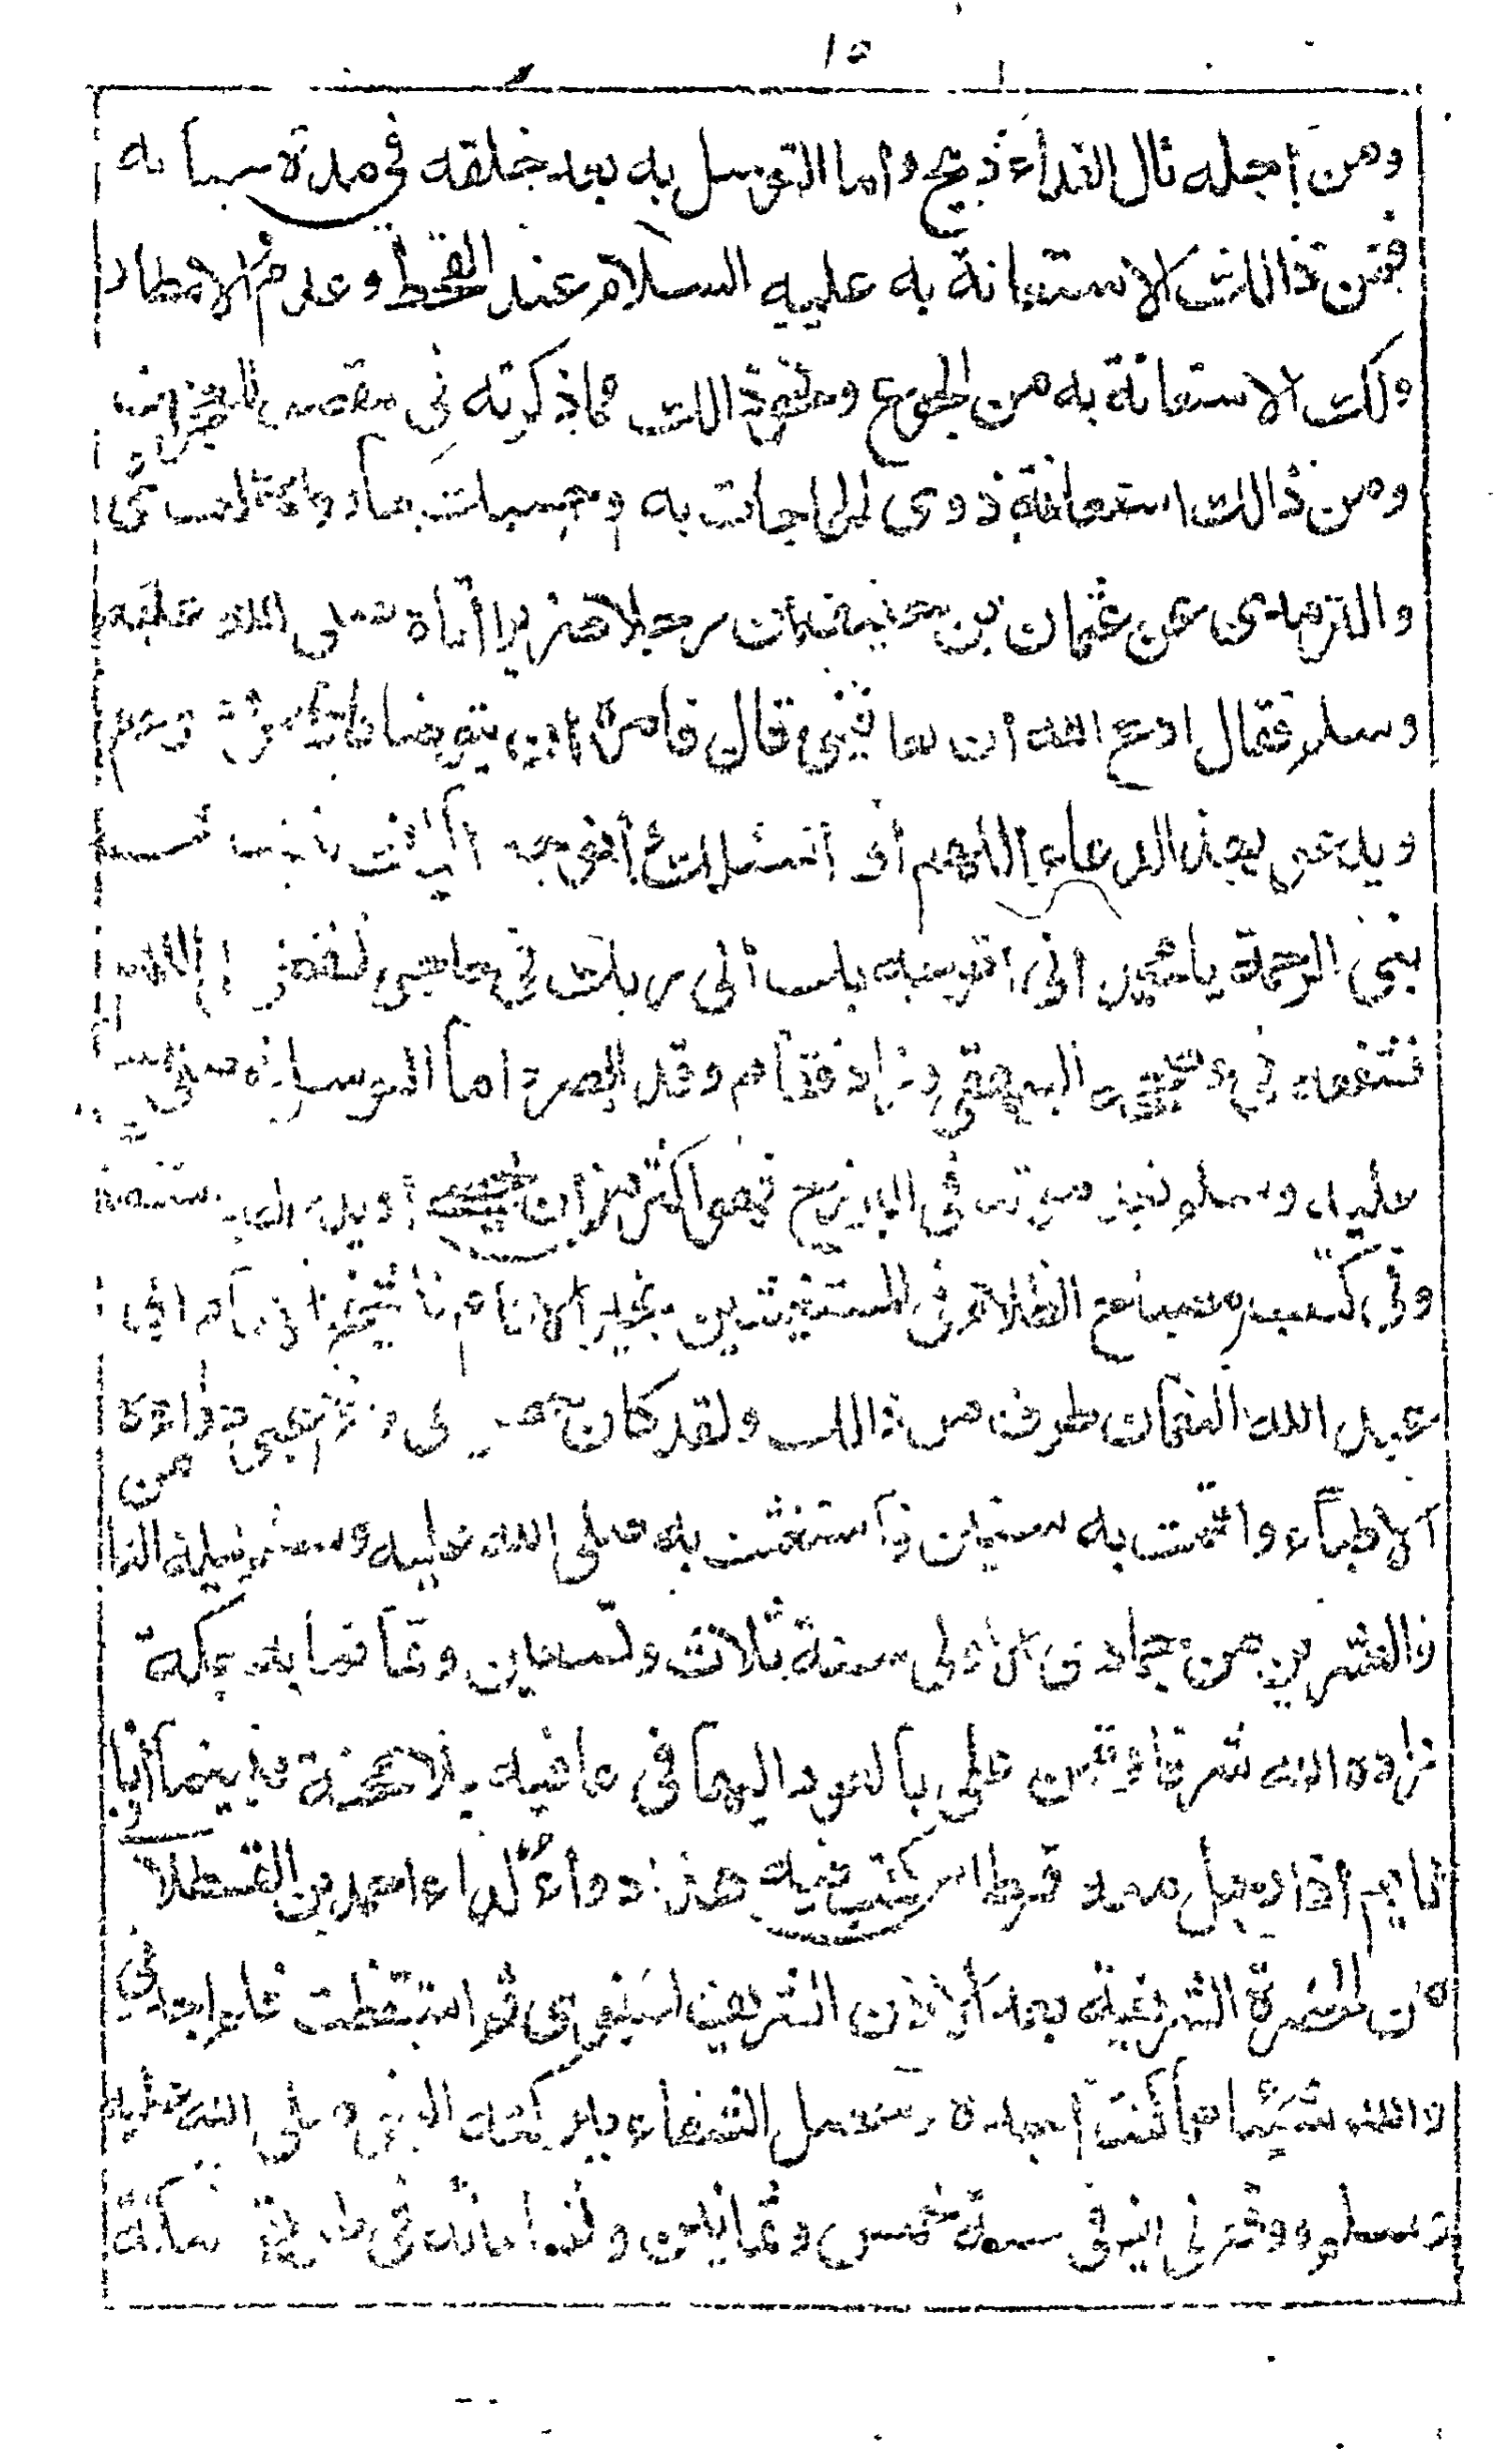 ١٥
ومن أجله نال الفداء ذبيح وأما التوسل به بعد خلقه في مدة حياته
فمن ذالك الاستغاثة به عليه السلام عند القحط وعدم الامطار
وكك الاستغاثة به من الجوع ونحو ذالك مما ذكرته في مقصد المعجزات
ومن ذالك استغاثة ذوى الحاجات به وحسبك ما رواه النسائي
والترمذى عن عثمان بن حنيف ان رجلا ضريرا أتاه صلى الله عليه
وسلم فقال ادع الله ان يعافيني قال فامره ان يتوضا
ويدعو بهذا الدعاء اللهم أني اسئلك أتوجه اليك بنبيك محمد
بنى الرحمة يا محمد انى اتوجه بك الى ربك في حاجتى لتقضى اللهم
فشفعه في وصححه البيهقي وزاد فقام وقد ابصر واما التوسل به صلى الله
عليه وسلم بعد موته في البرزخ فهو اكثر من ان يحصى او يدرك
وفي كتب مصباح الظلام في المستغيثين بخير الانام للشيخ
عبد الله النعمان طرف من ذالك ولقد كان حصل لى داء دواءه
من
الاطباء واقمت به سنين فاستغثت به صلى الله عليه وسلم ليلة الثا
والعشرين من جمادى الاولى سنة ثلاث وتسعين وثمانمايه بمكة
زاده الله شرفا ومن على بالعود اليها في عافيه بلا محنة فبينما أنا
نايم اذا رجل معه قرطاس كتب فيه هذا دواء لداء احمد بن القسطلا
من الحضرة الشريفة بعد الاذن الشريف النبوى ثم استيقظت فلم اجد بي
والله شيئا مما كنت أجده وحصل الشفاء ببركة النبي صلى الله عليه
وسلم ووقع لى ايضا في سنة خمس وثمانين وثمانمائة في طريق مكة